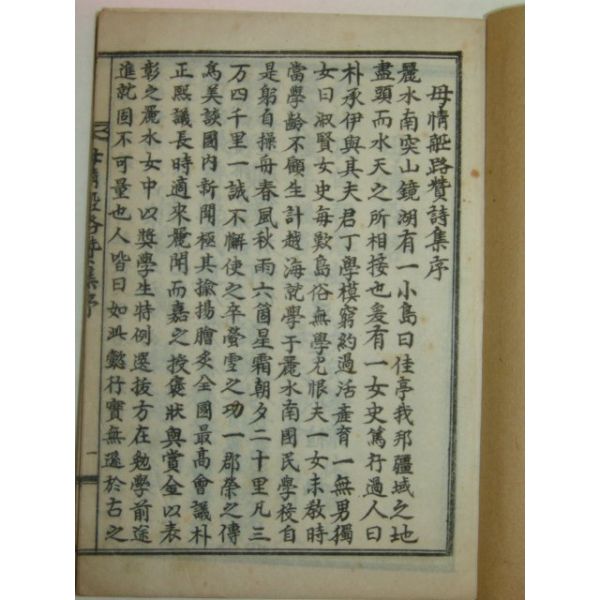 母情艇路賛詩集序
麗水南突山鏡湖有一小島曰佳亭我邦疆域之地
盡頭而水天之所相接也爰有一女史篤行過人曰
朴承伊與其夫君丁學模窮約過活產育一無男獨
女曰淑賢女史每歎島俗無學尤恨夫一女未敎時
當學齡不顧生計越海就學于麗水南國民學校自
是躬自操舟春風秋雨六箇星霜朝夕二十里凡三
万四千里一誠不懈使之卒螢雪之功一郡榮之傳
爲美談國內新聞極其揄揚膾炙全國最高會議朴
正熙議長時適來麗聞而嘉之授褒狀與賞金以表
彰之麗水女中以奬學生特例選拔方在勉學前途
進就固不可量也人皆曰如此懿行實無遜於古之
母情艇路賛詩集序
一